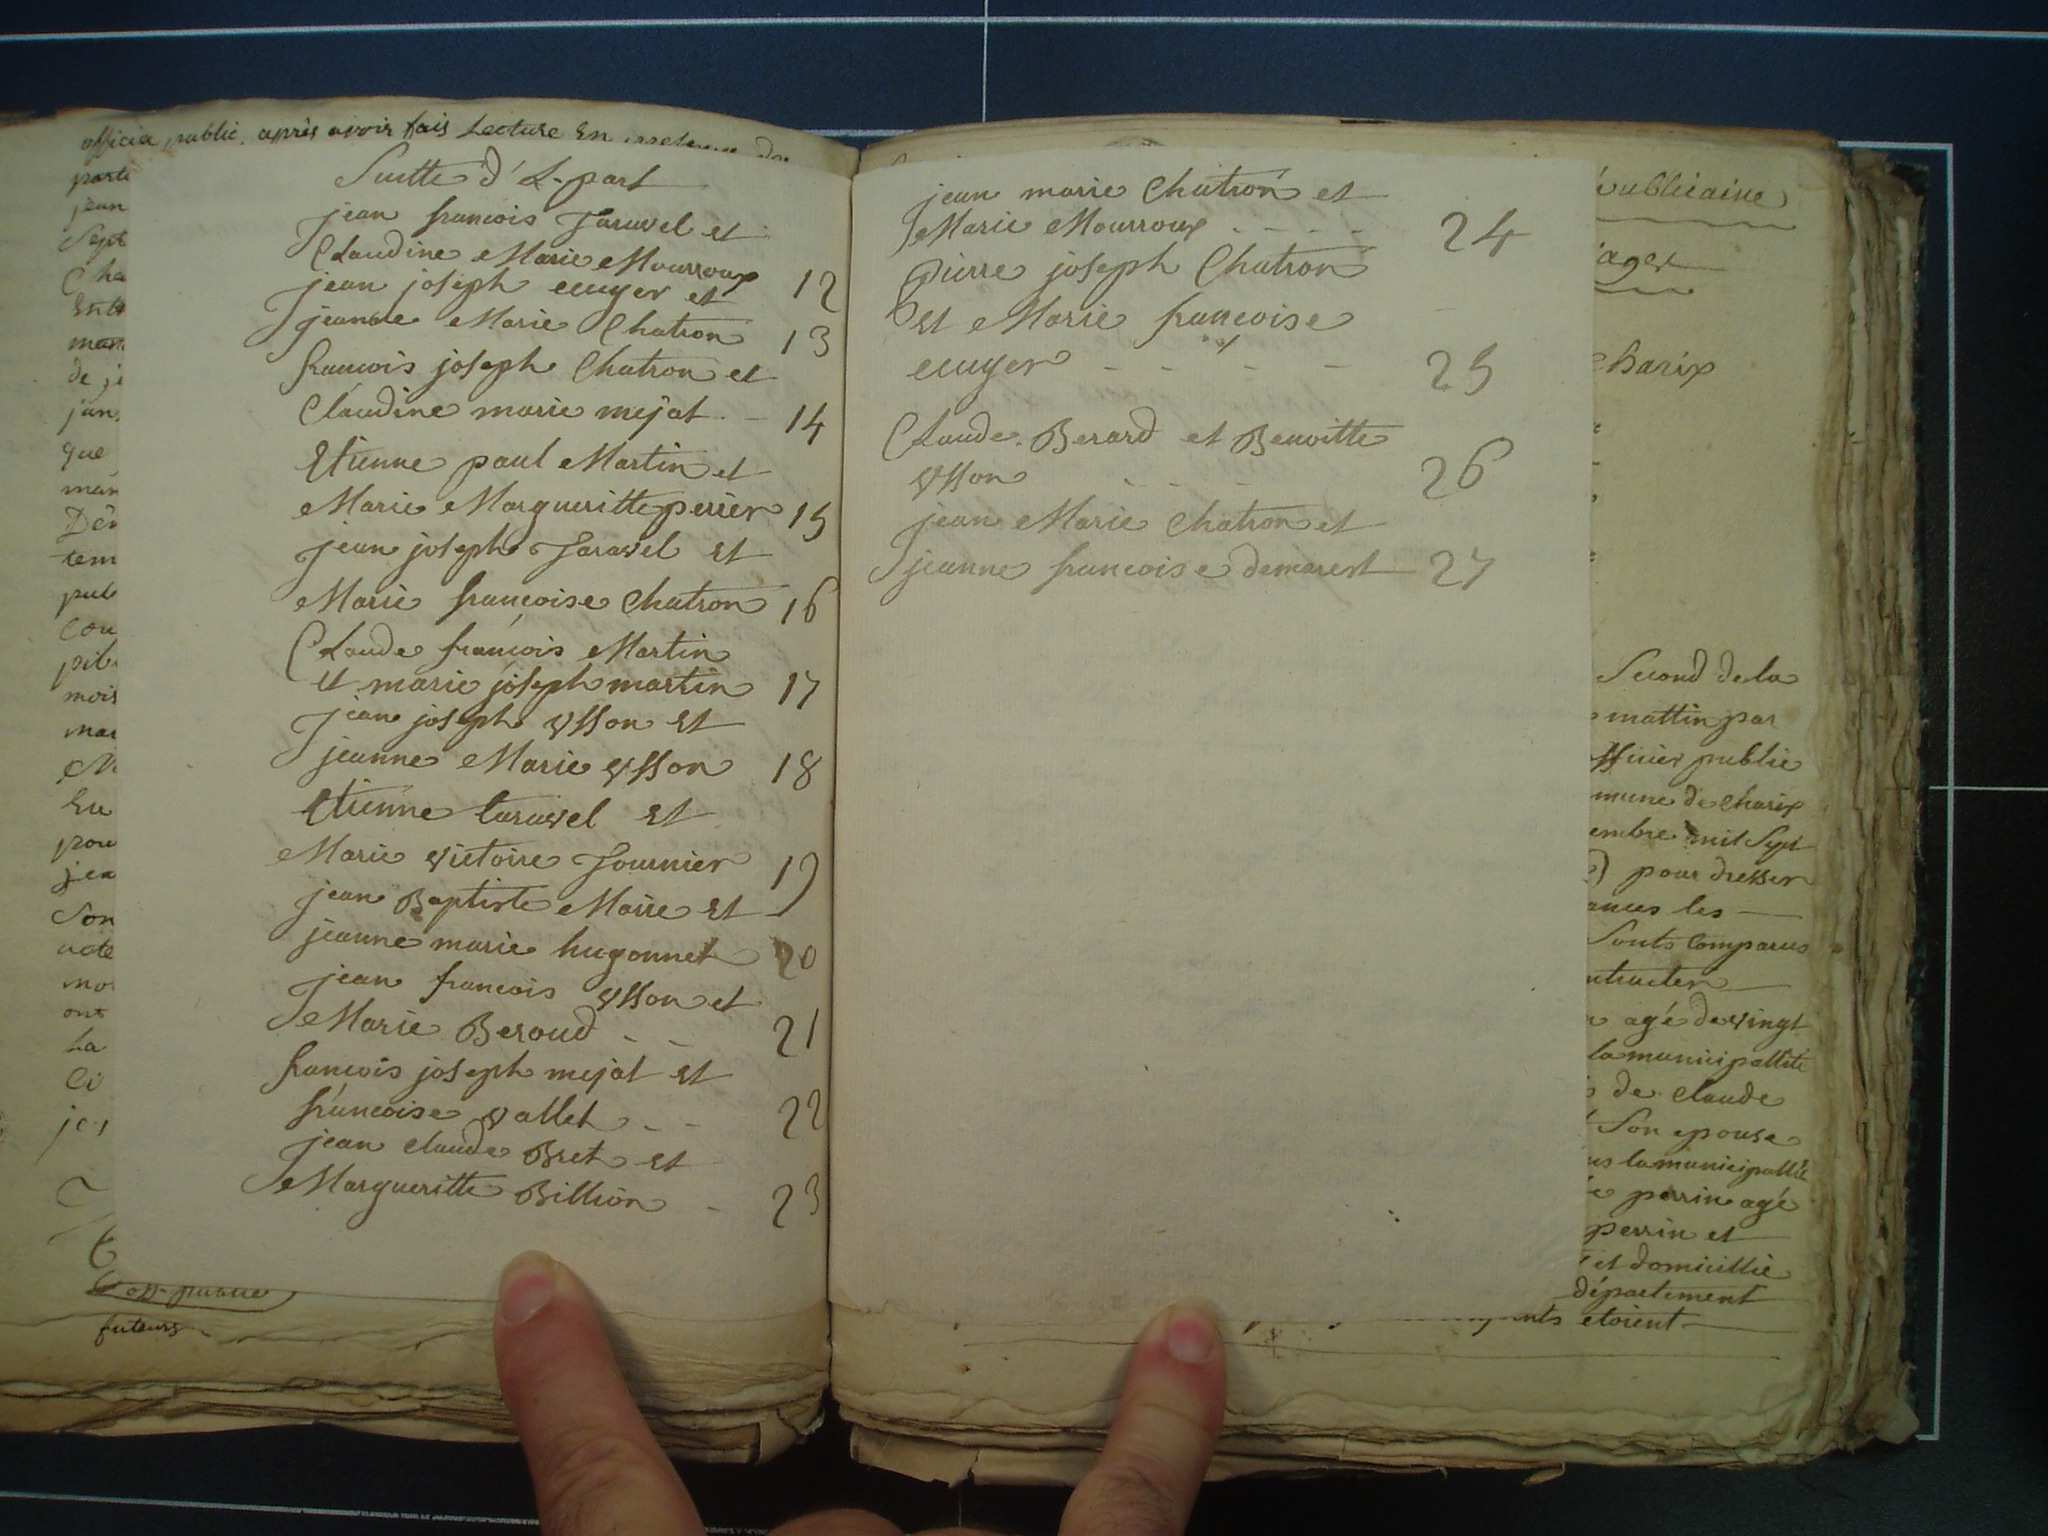 officier public. après avoir fais Lecture En
parte
jean
Sept
Cha
Entr
mar
de je
jan
que
mar
Dér
tem
pub
Con
pit
mois
mar
Eu
pou
jea
Son
acte
moi
ont
La
Ci
jes
off. public
futeurs
Suitte d'L-part
jean francois Taravel et
Claudine Marie Mourroux 12
jean joseph ecuyer et
jeanne Marie Chatron 13
francois joseph Chatron et
Claudine marie mejat - 14
Etienne paul Martin et
Marie Margueritte perier 15
jean joseph Taravel Et
Marie françoise Chatron 16
Claude françois Martin
et marie joseph martin 17
jean joseph ysson Et
jeanne Marie ysson 18
Etienne taravel Et
Marie victoire Tournier 19
jean Baptiste Maire Et
jeanne marie hugonnet 20
jean francois ysson et
Marie Beroud - - 21
francois joseph mejat Et
francoise vallet - - 22
jean claude Bret Et
Margueritte Billion - 23
jean marie Chatron et
Marie Mourroux - - - - 24
pierre joseph Chatron
Et Marie francoise
ecuyer - - - - 25
Claude Berard et Benoitte
ysson - - - 26
jean Marie Chatron et
jeanne francoise demarest 27
publicaine
iages
Charix
Second de la
mattin par
fficier public
mune de Charix
embre mil Sept
) pour dresser
ances les
Sonts Comparus
ntracter
agé de vingt
la municipallité
de claude
Son epouse
la municipallité
perrin agé
perrin et
et domicillié
département
etoient